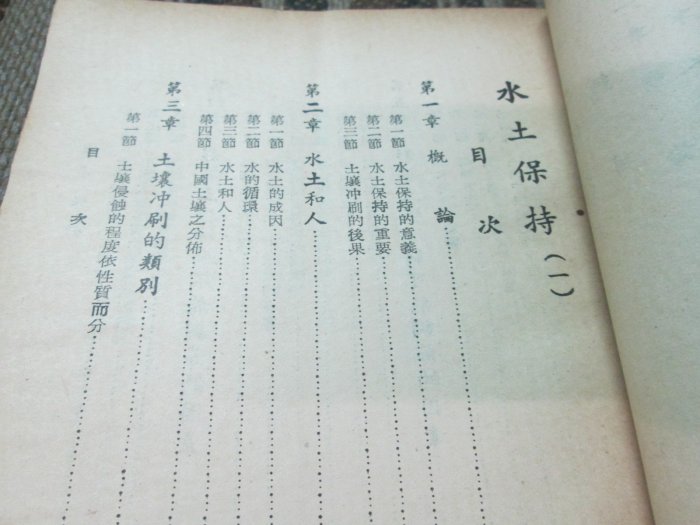 水土保持(一)
目次
第一章 概論
第一節 水土保持的意義
第二節 水土保持的重要
第三節 土壤冲刷的後果
第二章 水土和人
第一節 水土的成因
第二節 水的循環
第三節 水土和人
第四節 中國土壤之分佈
第三章 土壤冲刷的類別
第一節 土壤侵蝕的程度依性質而分
目次